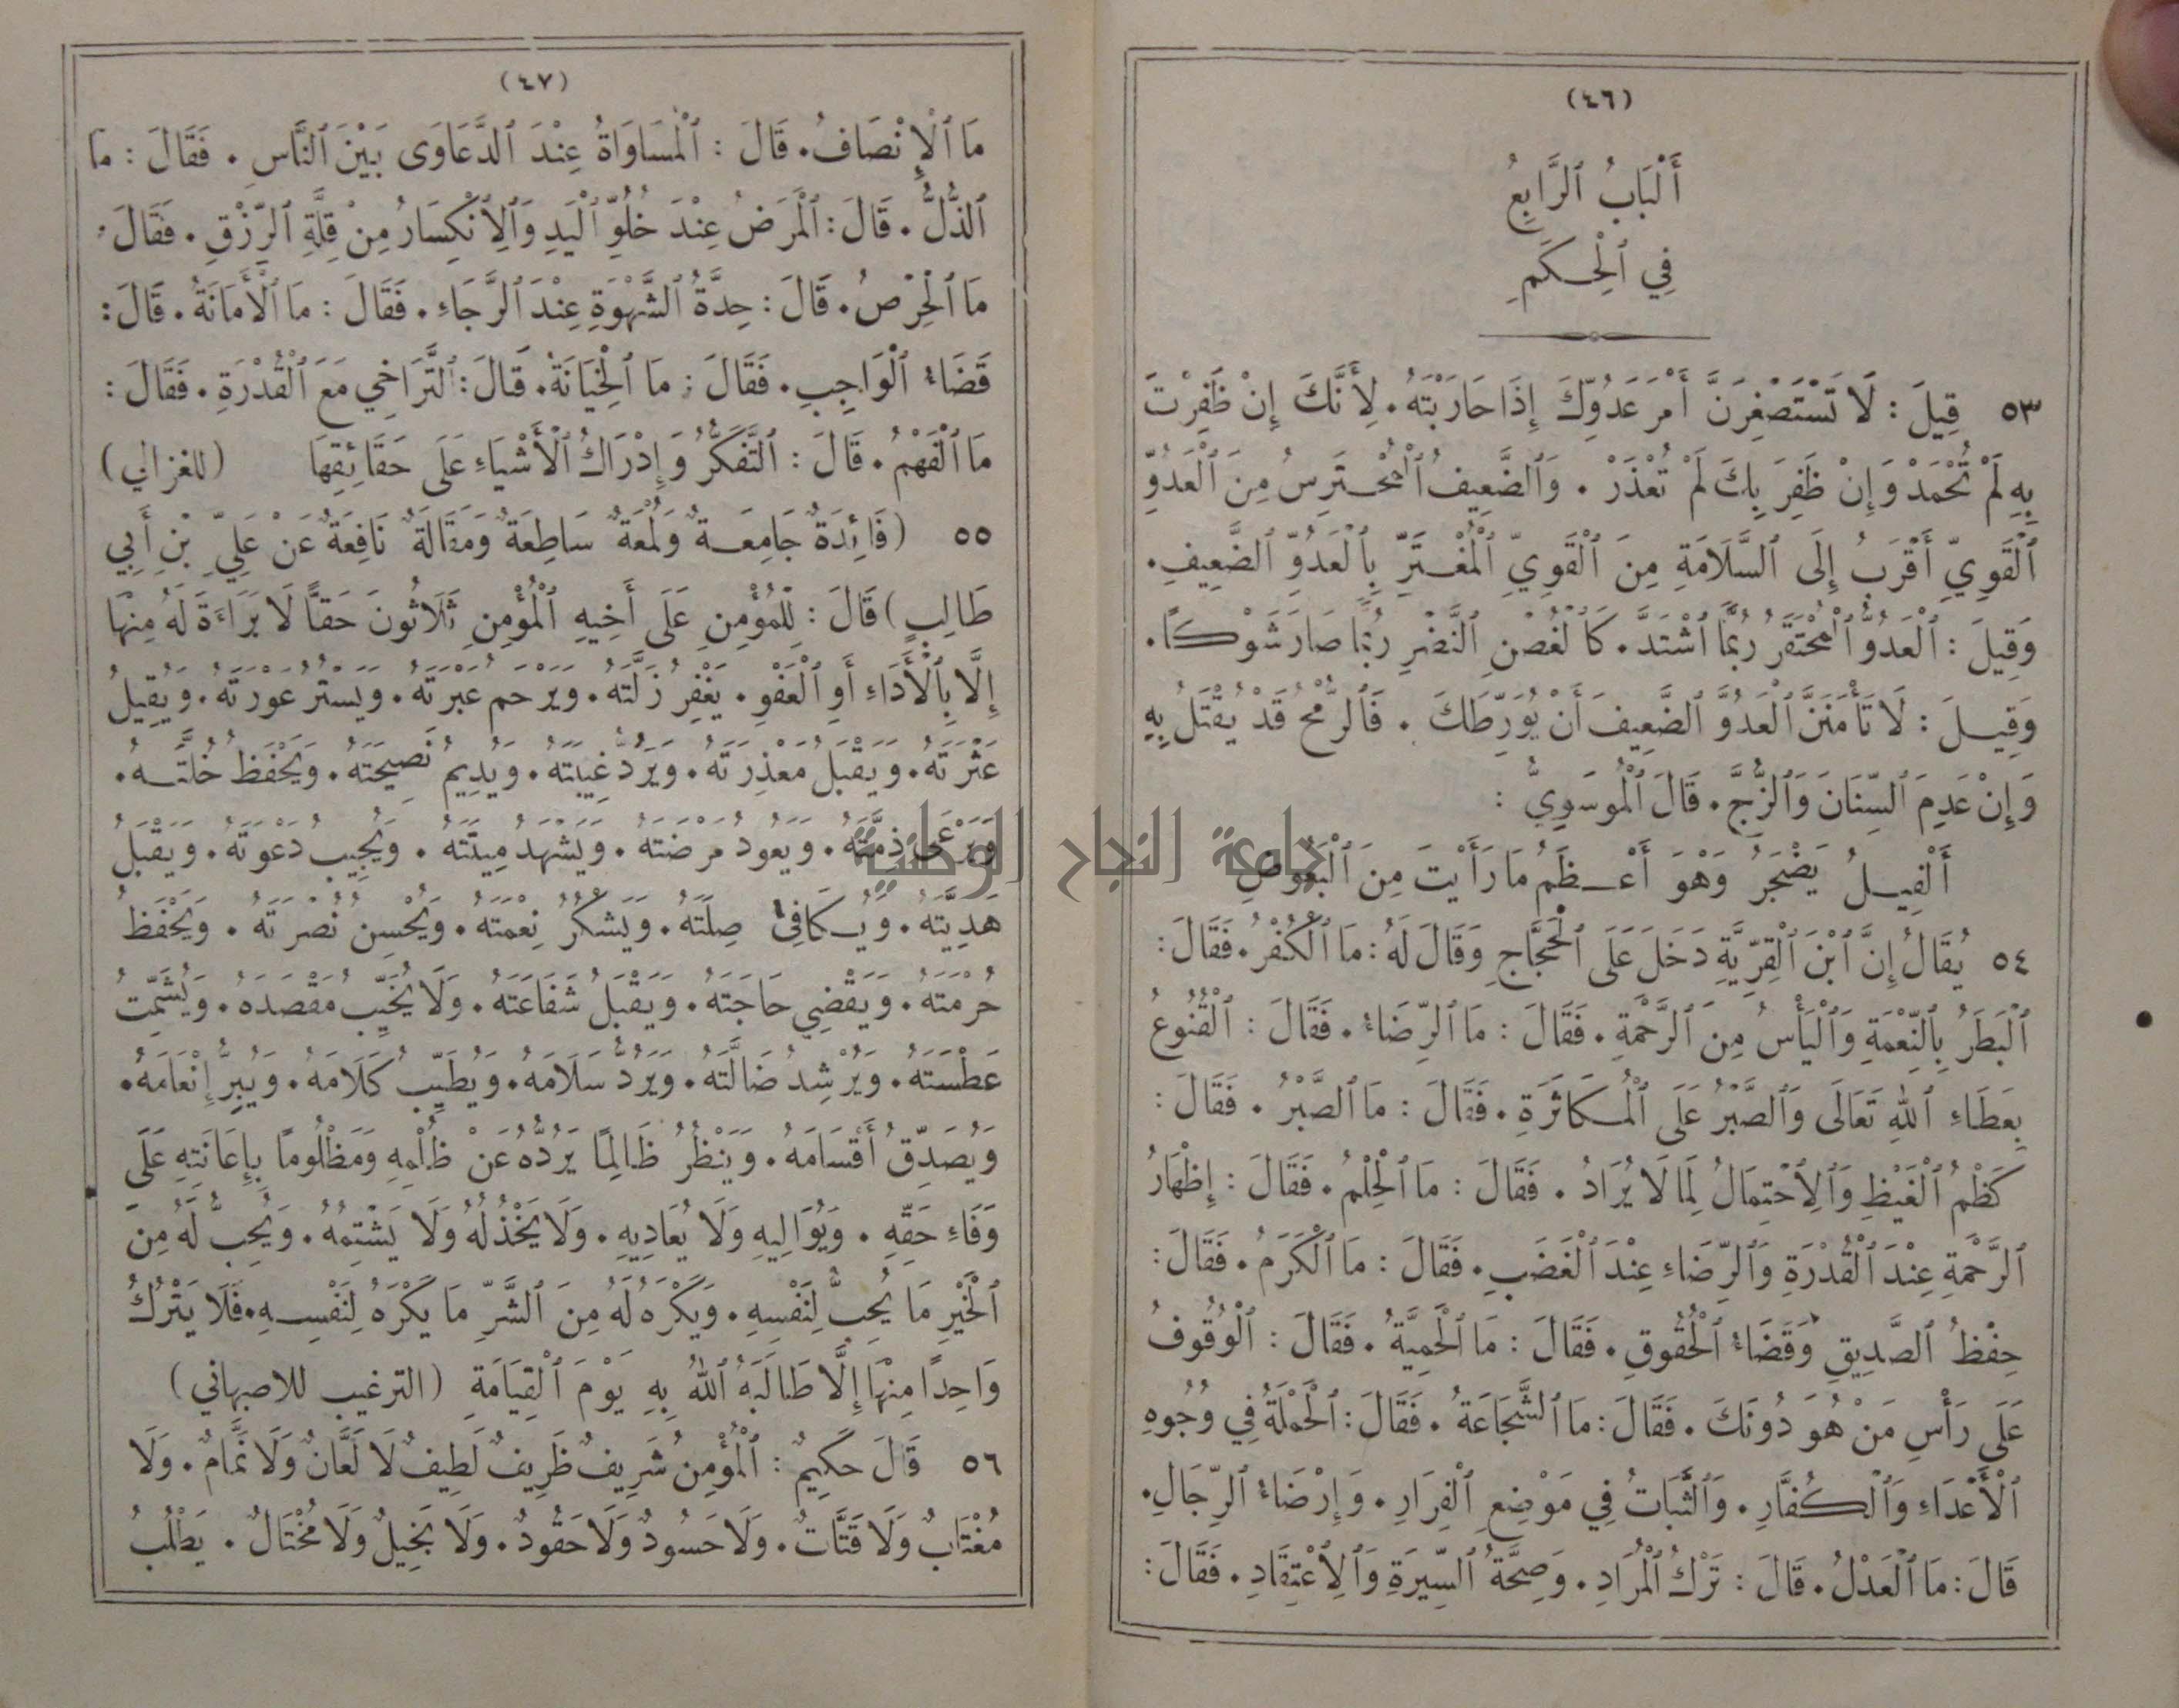 (٤٦)
أَلْبَابُ ٱلرَّابِعُ
فِي ٱلْحِكَمِ
٥٣ قِيلَ : لَا تَسْتَصْغِرَنَّ أَمْرَ عَدُوِّكَ إِذَا حَارَبْتَهُ . لِأَنَّكَ إِنْ ظَفِرْتَ
بِهِ لَمْ تُحْمَدْ وَإِنْ ظَفِرَ بِكَ لَمْ تُعْذَرْ . وَٱلضَّعِيفُ ٱلْمُحْتَرِسُ مِنَ ٱلْعَدُوِّ
ٱلْقَوِيِّ أَقْرَبُ إِلَى ٱلسَّلَامَةِ مِنَ ٱلْقَوِيِّ ٱلْمُغْتَرِّ بِٱلْعَدُوِّ ٱلضَّعِيفِ .
وَقِيلَ : ٱلْعَدُوُّ ٱلْمُحْتَقَرُ رُبَّمَا ٱشْتَدَّ . كَٱلْغُصْنِ ٱلنَّضْرِ رُبَّمَا صَارَ شَوْكًا .
وَقِيلَ : لَا تَأْمَنَنَّ ٱلْعَدُوَّ ٱلضَّعِيفَ أَنْ يُوَرِّطَكَ . فَٱلرُّمْحُ قَدْ يُقْتَلُ بِهِ
وَإِنْ عَدِمَ ٱلسِّنَانَ وَٱلزُّجَّ . قَالَ ٱلْمُوسَوِيُّ :
أَلْفِيلُ يَضْجَرُ وَهْوَ أَعْظَمُ مَا رَأَيْتَ مِنَ ٱلْبَعُوضِ
٥٤ يُقَالُ إِنَّ ٱبْنَ ٱلْقِرِّيَّةِ دَخَلَ عَلَى ٱلْحَجَّاجِ وَقَالَ لَهُ : مَا ٱلْكُفْرُ . فَقَالَ :
ٱلْبَطَرُ بِٱلنِّعْمَةِ وَٱلْيَأْسُ مِنَ ٱلرَّحْمَةِ . فَقَالَ : مَا ٱلرِّضَاءُ . فَقَالَ : ٱلْقُنُوعُ
بِعَطَاءِ ٱللهِ تَعَالَى وَٱلصَّبْرُ عَلَى ٱلْمُكَاثَرَةِ . فَقَالَ : مَا ٱلصَّبْرُ . فَقَالَ :
كَظْمُ ٱلْغَيْظِ وَٱلِٱحْتِمَالُ لِمَا لَا يُرَادُ . فَقَالَ : مَا ٱلْحِلْمُ . فَقَالَ : إِظْهَارُ
ٱلرَّحْمَةِ عِنْدَ ٱلْقُدْرَةِ وَٱلرِّضَاءِ عِنْدَ ٱلْغَضَبِ . فَقَالَ : مَا ٱلْكَرَمُ . فَقَالَ :
حِفْظُ ٱلصَّدِيقِ وَقَضَاءُ ٱلْحُقُوقِ . فَقَالَ : مَا ٱلْحَمِيَّةُ . فَقَالَ : ٱلْوُقُوفُ
عَلَى رَأْسِ مَنْ هُوَ دُونَكَ . فَقَالَ : مَا ٱلشَّجَاعَةُ . فَقَالَ : ٱلْحَمْلَةُ فِي وُجُوهِ
ٱلْأَعْدَاءِ وَٱلْكُفَّارِ . وَٱلثَّبَاتُ فِي مَوْضِعِ ٱلْفِرَارِ . وَإِرْضَاءُ ٱلرِّجَالِ .
قَالَ : مَا ٱلْعَدْلُ . قَالَ : تَرْكُ ٱلْمُرَادِ . وَصِحَّةُ ٱلسِّيرَةِ وَٱلِٱعْتِقَادِ . فَقَالَ :
(٤٧)
مَا ٱلْإِنْصَافُ . قَالَ : ٱلْمُسَاوَاةُ عِنْدَ ٱلدَّعَاوَى بَيْنَ ٱلنَّاسِ . فَقَالَ : مَا
ٱلذُّلُّ . قَالَ : ٱلْمَرَضُ عِنْدَ خُلُوِّ ٱلْيَدِ وَٱلِٱنْكِسَارُ مِنْ قِلَّةِ ٱلرِّزْقِ . فَقَالَ :
مَا ٱلْحِرْصُ . قَالَ : حِدَّةُ ٱلشَّهْوَةِ عِنْدَ ٱلرَّجَاءِ . فَقَالَ : مَا ٱلْأَمَانَةُ . قَالَ :
قَضَاءُ ٱلْوَاجِبِ . فَقَالَ : مَا ٱلْخِيَانَةُ . قَالَ : ٱلتَّرَاخِي مَعَ ٱلْقُدْرَةِ . فَقَالَ :
مَا ٱلْفَهْمُ . قَالَ : ٱلتَّفَكُّرُ وَإِدْرَاكُ ٱلْأَشْيَاءِ عَلَى حَقَائِقِهَا (للغزالي)
٥٥ (فَائِدَةٌ جَامِعَةٌ وَلُمْعَةٌ سَاطِعَةٌ وَمَقَالَةٌ نَافِعَةٌ عَنْ عَلِيِّ بْنِ أَبِي
طَالِبٍ) قَالَ : لِلْمُؤْمِنِ عَلَى أَخِيهِ ٱلْمُؤْمِنِ ثَلَاثُونَ حَقًّا لَا بَرَاءَةَ لَهُ مِنْهَا
إِلَّا بِٱلْأَدَاءِ أَوِ ٱلْعَفْوِ . يَغْفِرُ زَلَّتَهُ . وَيَرْحَمُ عَبْرَتَهُ . وَيَسْتُرُ عَوْرَتَهُ . وَيُقِيلُ
عَثْرَتَهُ . وَيَقْبَلُ مَعْذِرَتَهُ . وَيَرُدُّ غِيبَتَهُ . وَيُدِيمُ نَصِيحَتَهُ . وَيَحْفَظُ خُلَّتَهُ .
وَيَرْعَى ذِمَّتَهُ . وَيَعُودُ مَرْضَتَهُ . وَيَشْهَدُ مِيتَتَهُ . وَيُجِيبُ دَعْوَتَهُ . وَيَقْبَلُ
هَدِيَّتَهُ . وَيُكَافِئُ صِلَتَهُ . وَيَشْكُرُ نِعْمَتَهُ . وَيُحْسِنُ نُصْرَتَهُ . وَيَحْفَظُ
حُرْمَتَهُ . وَيَقْضِي حَاجَتَهُ . وَيَقْبَلُ شَفَاعَتَهُ . وَلَا يُخَيِّبُ مَقْصَدَهُ . وَيُشَمِّتُ
عَطْسَتَهُ . وَيُرْشِدُ ضَالَّتَهُ . وَيَرُدُّ سَلَامَهُ . وَيُطَيِّبُ كَلَامَهُ . وَيُبِرُّ إِنْعَامَهُ .
وَيُصَدِّقُ أَقْسَامَهُ . وَيَنْظُرُ ظَالِمًا يَرُدُّهُ عَنْ ظُلْمِهِ وَمَظْلُومًا بِإِعَانَتِهِ عَلَى
وَفَاءِ حَقِّهِ . وَيُوَالِيهِ وَلَا يُعَادِيهِ . وَلَا يَخْذُلُهُ وَلَا يَشْتِمُهُ . وَيُحِبُّ لَهُ مِنَ
ٱلْخَيْرِ مَا يُحِبُّ لِنَفْسِهِ . وَيَكْرَهُ لَهُ مِنَ ٱلشَّرِّ مَا يَكْرَهُ لِنَفْسِهِ . فَلَا يَتْرُكُ
وَاحِدًا مِنْهَا إِلَّا طَالَبَهُ ٱللهُ بِهِ يَوْمَ ٱلْقِيَامَةِ (الترغيب للاصبهاني)
٥٦ قَالَ حَكِيمٌ : ٱلْمُؤْمِنُ شَرِيفٌ ظَرِيفٌ لَطِيفٌ لَا لَعَّانٌ وَلَا نَمَّامٌ . وَلَا
مُغْتَابٌ وَلَا قَتَّاتٌ . وَلَا حَسُودٌ وَلَا حَقُودٌ . وَلَا بَخِيلٌ وَلَا مُخْتَالٌ . يَطْلُبُ
جامعة النجاح الوطنية